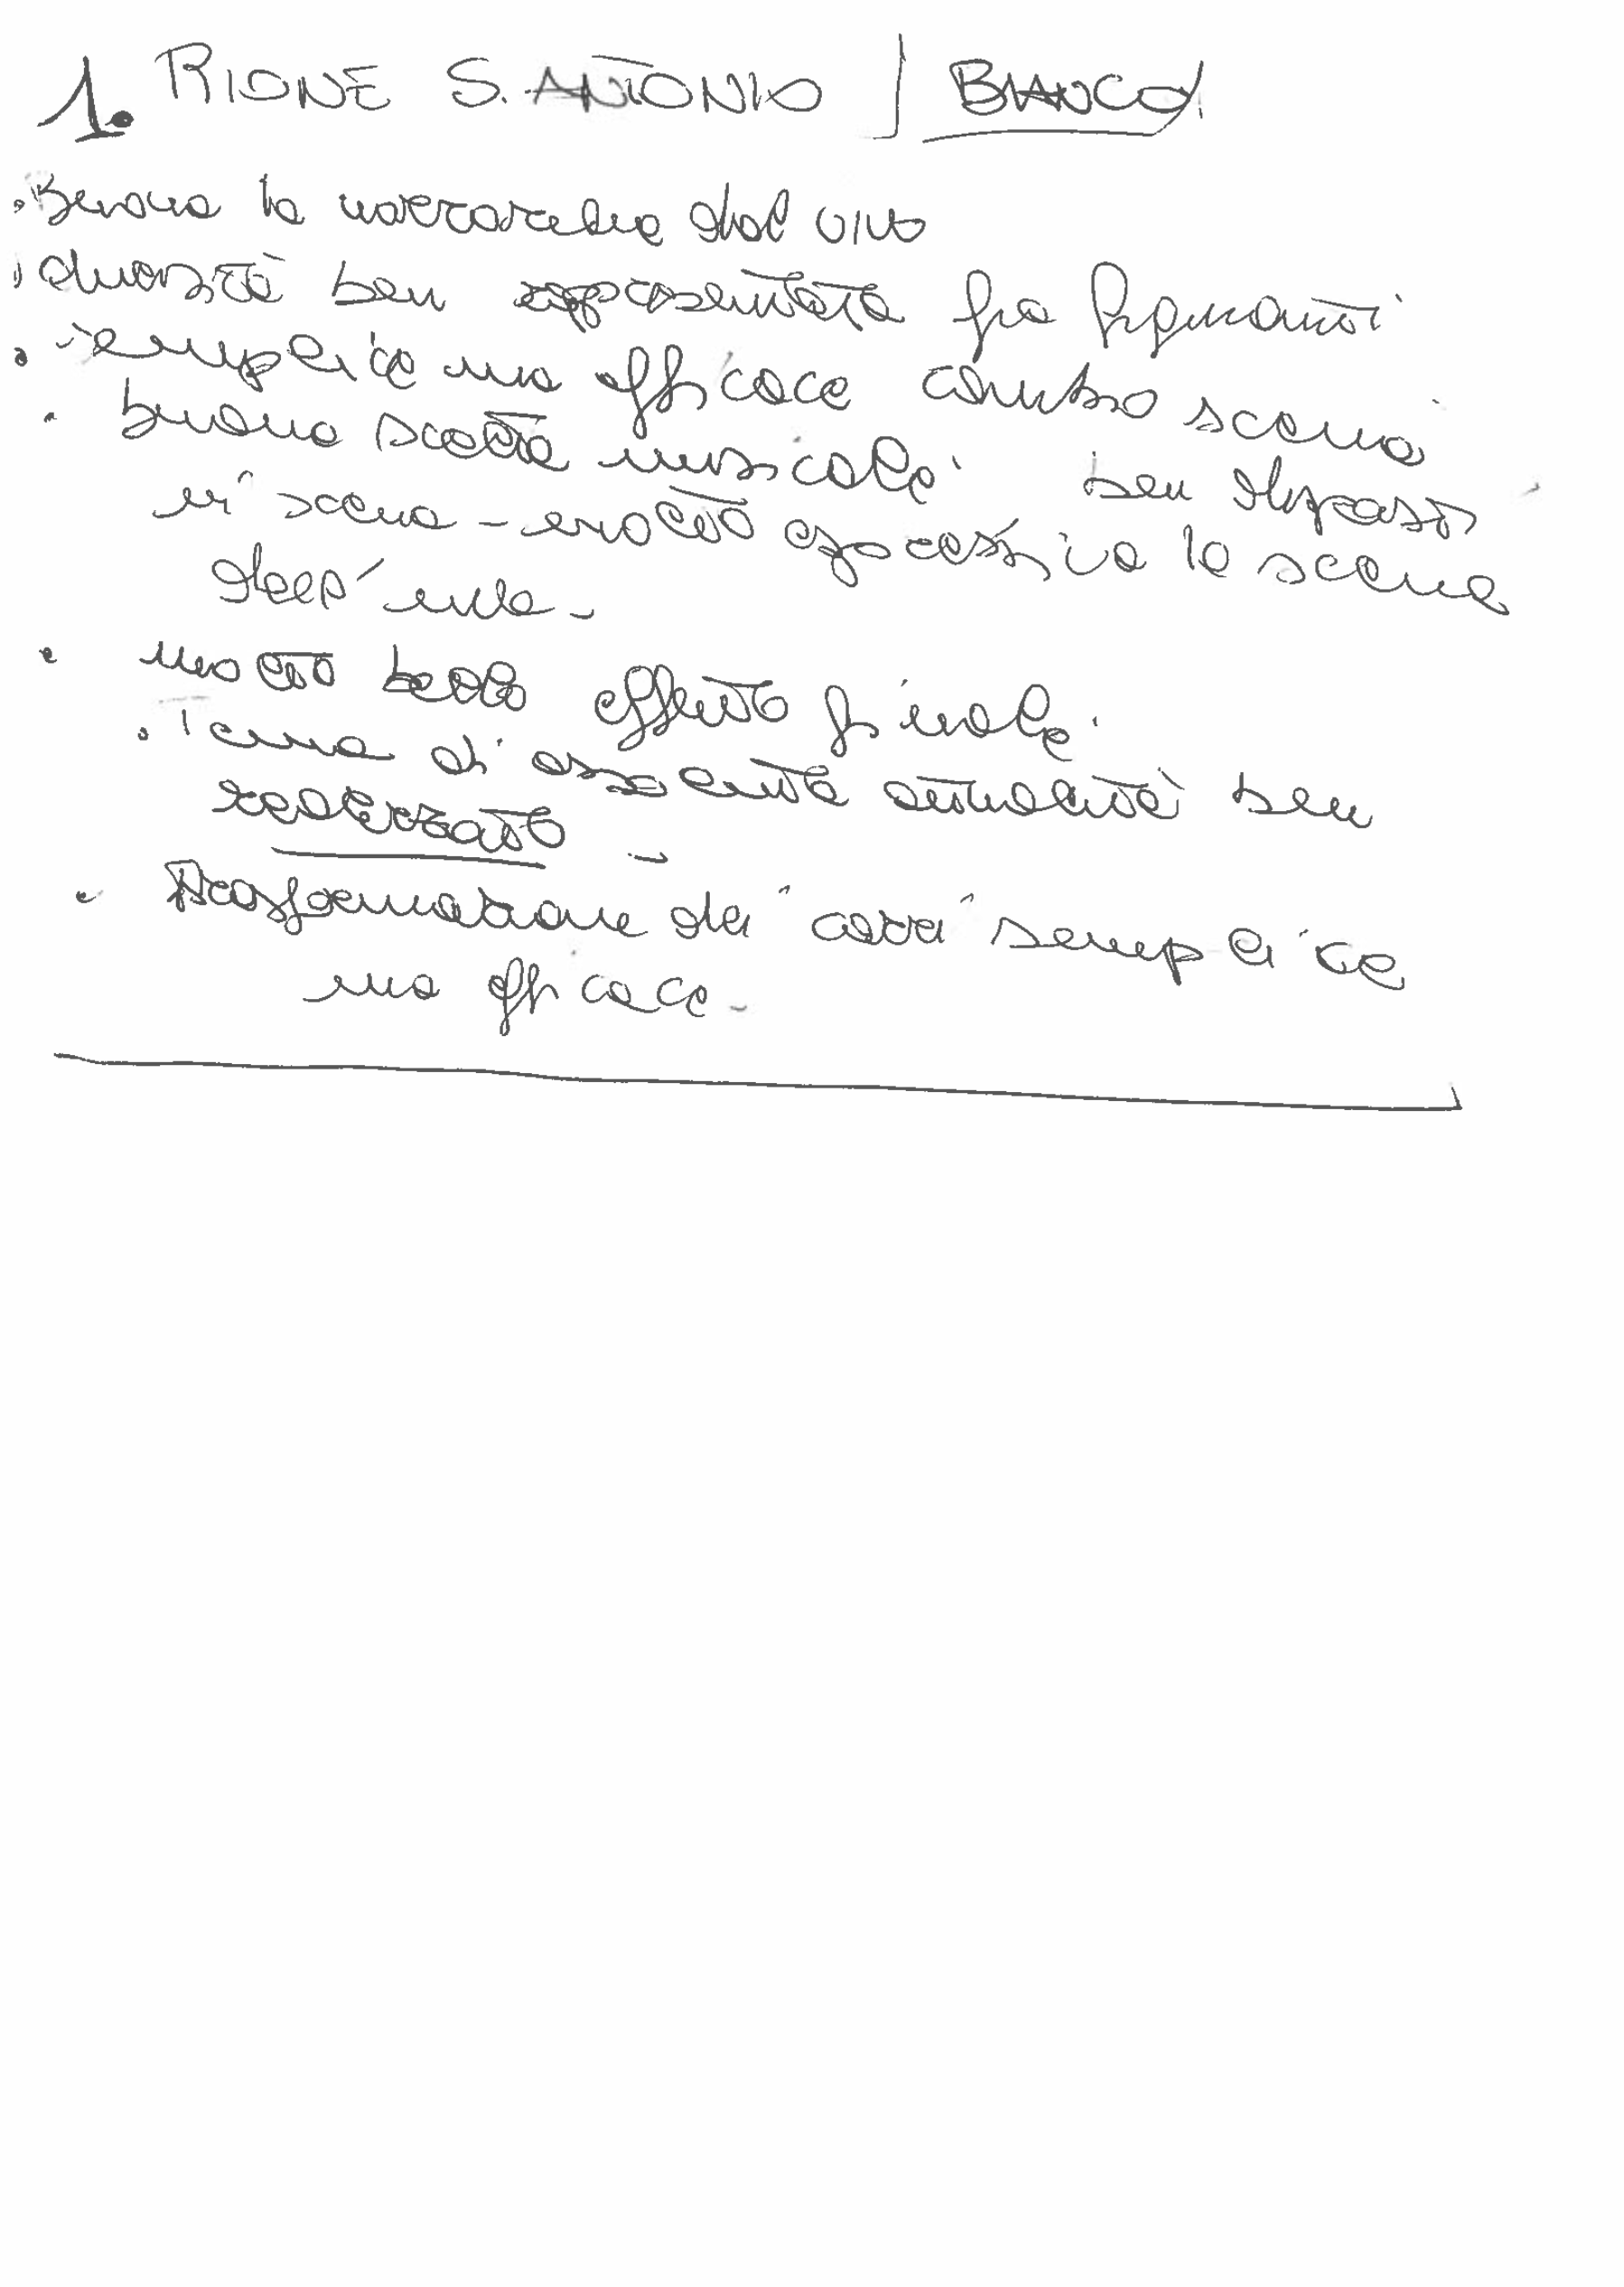 1. RIONE S. ANTONIO | BIANCO
. Buona la narrazione dal vivo
. diversità ben rappresentata fra figuranti
. semplice ma efficace cambio scena
. buona scelta musicale. ben disposti
in scena - molto espressiva la scena
dell'
. molto bello effetto finale.
. Tema di assoluta attualità ben
realizzato -
. Trasformazione dei carri semplice
ma efficace -